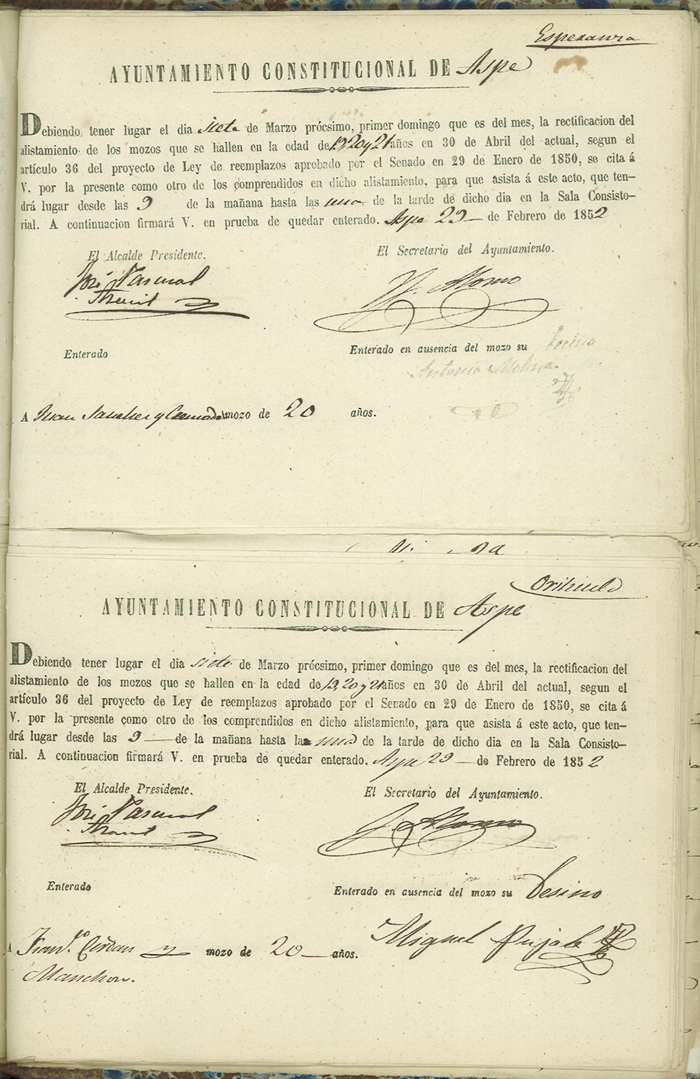 Esperanza
AYUNTAMIENTO CONSTITUCIONAL DE Aspe
Debiendo tener lugar el dia siete de Marzo prócsimo, primer domingo que es del mes, la rectificacion del
alistamiento de los mozos que se hallen en la edad de 19, 20 y 21 años en 30 de Abril del actual, segun el
artículo 36 del proyecto de Ley de reemplazos aprobado por el Senado en 29 de Enero de 1850, se cita á
V. por la presente como otro de los comprendidos en dicho alistamiento, para que asista á este acto, que ten-
drá lugar desde las 9 de la mañana hasta las una de la tarde de dicho dia en la Sala Consisto-
rial. A continuacion firmará V. en prueba de quedar enterado. Aspe 29 de Febrero de 1852
El Alcalde Presidente.
El Secretario del Ayuntamiento.
José Pascual
Alonso
Enterado
Enterado en ausencia del mozo su Vecino
Antonio Molina
A Juan Sanchez y mozo de 20 años.
Orihuela
AYUNTAMIENTO CONSTITUCIONAL DE Aspe
Debiendo tener lugar el dia siete de Marzo prócsimo, primer domingo que es del mes, la rectificacion del
alistamiento de los mozos que se hallen en la edad de 19, 20 y 21 años en 30 de Abril del actual, segun el
artículo 36 del proyecto de Ley de reemplazos aprobado por el Senado en 29 de Enero de 1850, se cita á
V. por la presente como otro de los comprendidos en dicho alistamiento, para que asista á este acto, que ten-
drá lugar desde las 9 de la mañana hasta las una de la tarde de dicho dia en la Sala Consisto-
rial. A continuacion firmará V. en prueba de quedar enterado. Aspe 29 de Febrero de 1852
El Alcalde Presidente.
El Secretario del Ayuntamiento.
José Pascual
Alonso
Enterado
Enterado en ausencia del mozo su Vesino
A Fran.co mozo de 20 años.
Miguel Pujalte
Manchon.